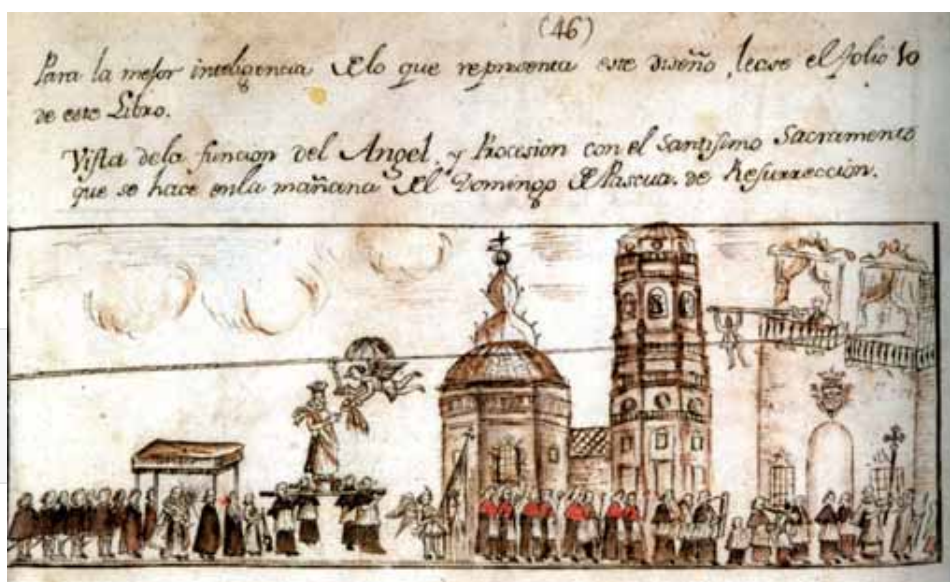 (46)
Para la mejor inteligencia delo que representa este diseño, lease el folio 10
de este Libro.
Vista dela funcion del Angel, y Procesion con el Santisimo Sacramento
que se hace enla mañana del Domingo de Pascua de Resurreccion.